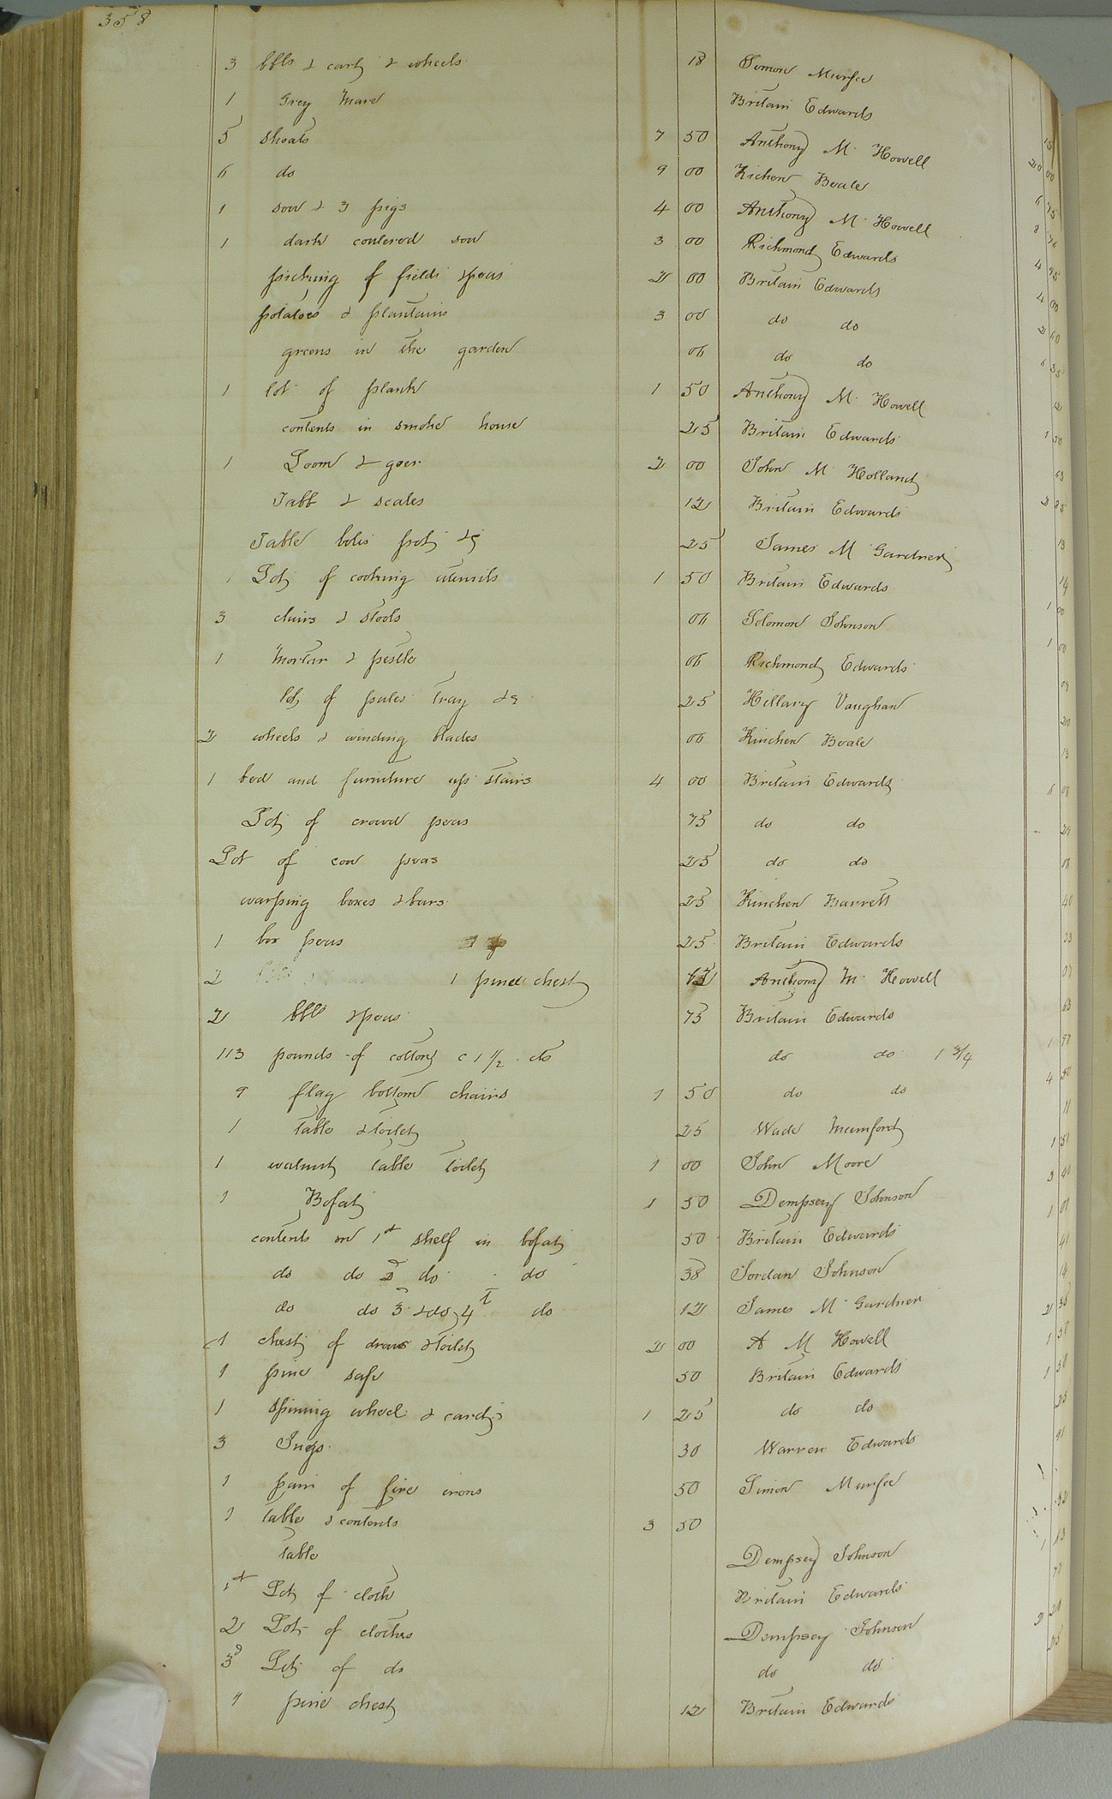 358
3 bbls & carts & wheels 18 Simon Murfee
1 Grey Mare Britain Edwards
5 shoats 7 50 Anthony M Howell
6 do 9 00 Kichen Beale
1 sow & 3 pigs 4 00 Anthony M Howell
1 dark coulered sow 3 00 Richmond Edwards
picking of field peas 2 00 Britain Edwards
potatoes & plantains 3 00 do do
greens in the garden 06 do do
1 lot of plank 1 50 Anthony M Howell
contents in smoke house 25 Britain Edwards
1 Loom & gear 2 00 John M Holland
Tabb & scales 12 Britain Edwards
Table pots &c 25 James M Gardner
1 Lot of cooking utensils 1 50 Britain Edwards
3 chairs & stools 06 Solomon Johnson
1 Mortar & pestle 06 Richmond Edwards
lot of pales tray &c 25 Hillary Vaughan
2 wheels & winding blades 06 Kinchen Beale
1 bed and furniture up stairs 4 00 Britain Edwards
Lot of crowd peas 75 do do
Lot of cow peas 25 do do
warping boxes & bars 25 Kinchen Barrett
1 box peas 25 Britain Edwards
2 1 pine chest Anthony M Howell
2 bbls & peas 75 Britain Edwards
113 pounds of cotton c 1 1/2 do do do 1 3/4
9 flag bottom chairs 1 50 do do
1 table & toilet 25 Wade Mumford
1 walnut table toilet 1 00 John Moore
1 Bofat 1 50 Dempsey Johnson
contents on 1st shelf in bofat 50 Britain Edwards
do do 2d do do 38 Jordan Johnson
do do 3 & do 4t do 12 James M Gardner
1 chest of draws & toilet 2 00 A M Howell
1 pine safe 50 Britain Edwards
1 spining wheel & cards 1 25 do do
3 Jugs 30 Warren Edwards
1 pair of fire irons 50 Simon Murfee
1 table & contents 3 50
table Dempsey Johnson
1st Lot of cloth Britain Edwards
2 Lot of clothes Dempsey Johnson
3d Lot of do do do
1 pine chest 12 Britain Edwards